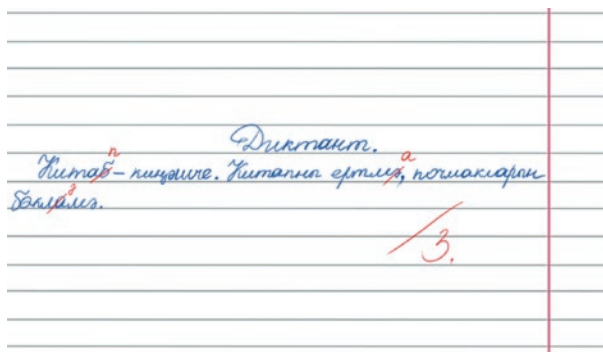 Диктант.
п а
Китаб – киңәшче. Китапны ертмә, почмакларын
ә
бөкламә.
/3.